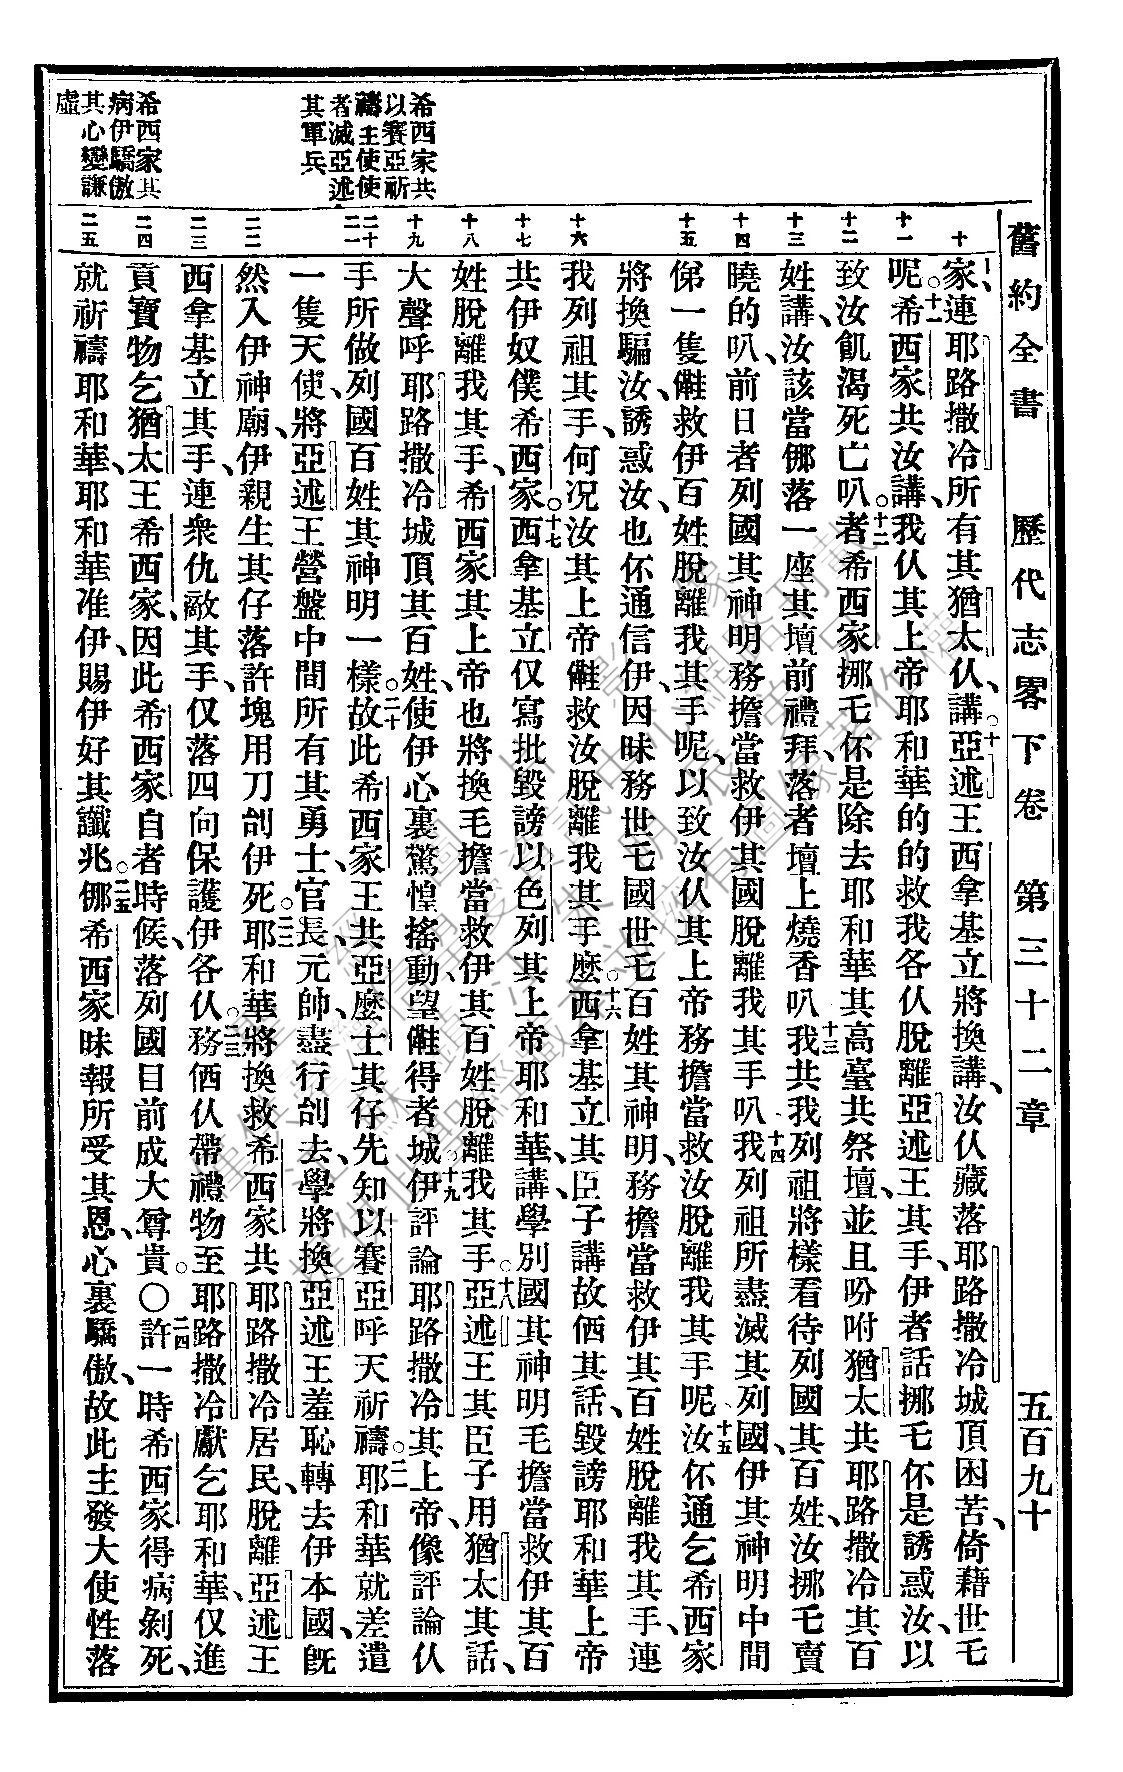 舊約全書　歷代志畧下卷　第三十二章　五百九十
希西家共
以賽亞祈
禱主使使
者滅亞述
其軍兵
希西家其
病伊驕傲
其心變謙
虛
十
十一
十二
十三
十四
十五
十六
十七
十八
十九
二十
二一
二二
二三
二四
二五
家連耶路撒冷所有其猶太仈講、○十亞述王西拿基立將換講、汝仈藏落耶路撒冷城頂困苦、倚藉世乇
呢。○十一希西家共汝講、我仈其上帝耶和華的的救我各仈脫離亞述王其手、伊者話挪乇伓是誘惑汝、以
致汝飢渴死亡叭。十二者希西家挪乇伓是除去耶和華其高臺共祭壇、並且吩咐猶太共耶路撒冷其百
姓講、汝該當㑚落一座其壇前禮拜、落者壇上燒香叭。十三我共我列祖將樣看待列國其百姓、汝挪乇賣
曉的叭、前日者列國其神明務擔當救伊其國脫離我其手叭。十四我列祖所盡滅其列國、伊其神明中間
俤一隻㑼救伊百姓脫離我其手呢、以致汝仈其上帝務擔當救汝脫離我其手呢。十五汝伓通乞希西家
將換騙汝、誘惑汝、也伓通信伊、因昧務世乇國世乇百姓其神明、務擔當救伊其百姓脫離我其手、連
我列祖其手、何况汝其上帝㑼救汝脫離我其手麽。○十六西拿基立其臣子講故㑚其話、毀謗耶和華上帝
共伊奴僕希西家。○十七西拿基立仅寫批毀謗以色列其上帝耶和華、講、學別國其神明乇擔當救伊其百
姓脫離我其手、希西家其上帝也將換乇擔當救伊其百姓脫離我其手。○十八亞述王其臣子、用猶太其話、
大聲呼耶路撒冷城頂其百姓、使伊心裏驚惶搖動、望㑼得者城。○十九伊評論耶路撒冷其上帝、像評論仈
手所做列國百姓其神明一樣。○二十故此希西家王共亞麽士其仔先知以賽亞呼天祈禱。○二一耶和華就差遣
一隻天使、將亞述王營盤中間所有其勇士、官長、元帥、盡行刣去、學將換亞述王羞恥、轉去伊本國、旣
然入伊神廟、伊親生其仔落許塊用刀刣伊死。○二二耶和華將換救希西家共耶路撒冷居民脫離亞述王
西拿基立其手、連衆仇敵其手、仅落四向保護伊各仈。○二三務㑚仈帶禮物至耶路撒冷獻乞耶和華、仅進
貢寶物乞猶太王希西家、因此希西家自者時候、落列國目前成大尊貴。○二四許一時希西家得病剝死、
就祈禱耶和華、耶和華准伊、賜伊好其讖兆。○二五㑚希西家昧報所受其恩、心裏驕傲、故此主發大使性落